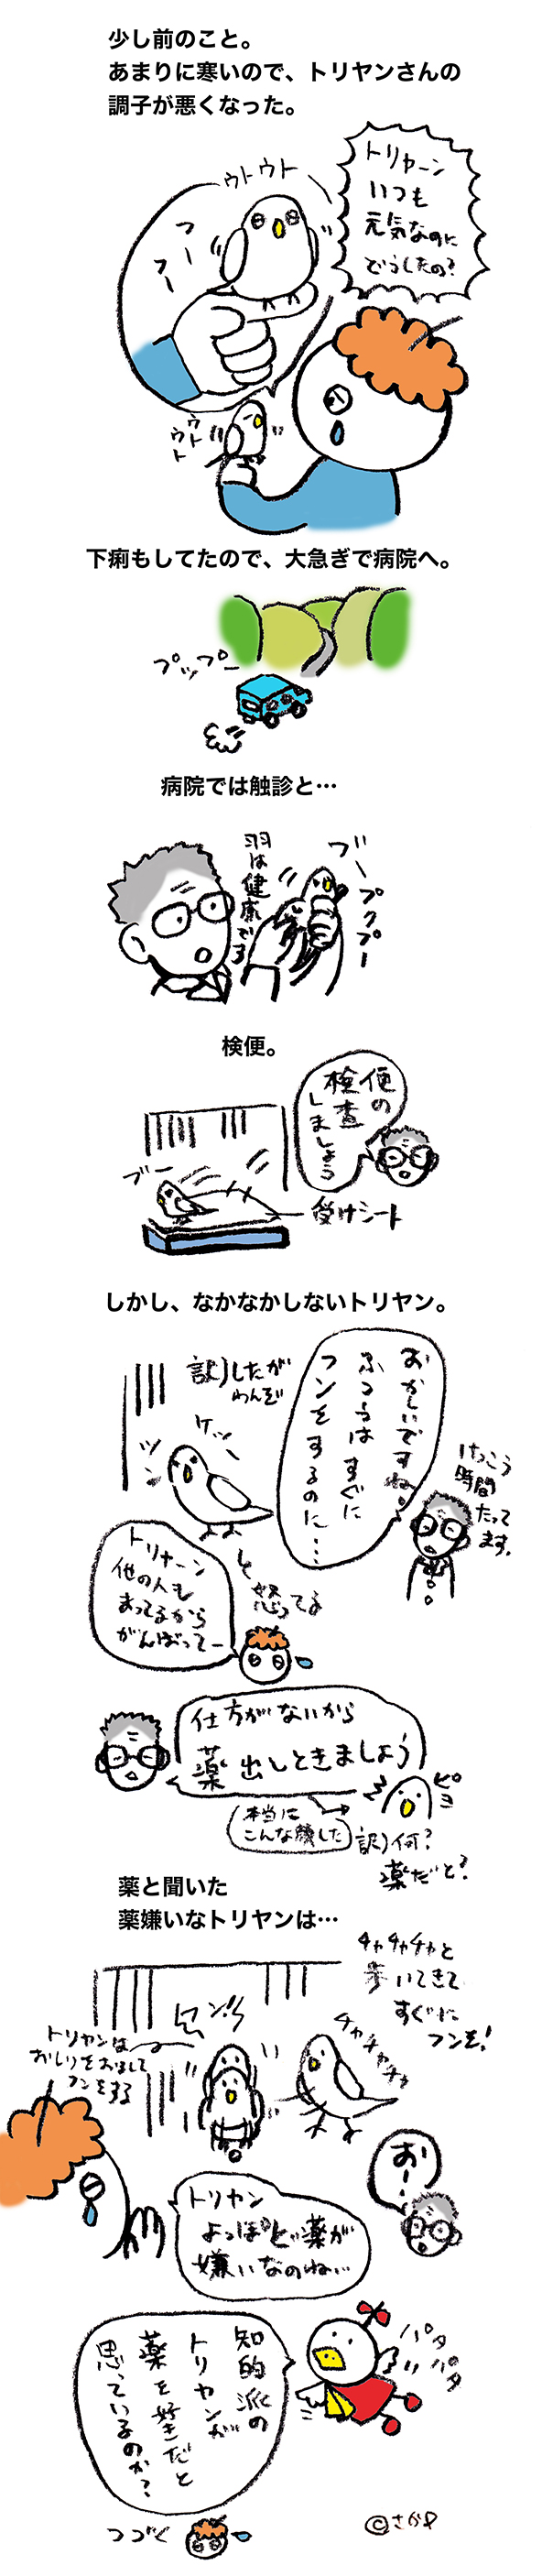 少し前のこと。
あまりに寒いので、トリヤンさんの
調子が悪くなった。
ウトウト
トリヤーン
いつも
元気なのに
どうしたの?
フー
フー
ウトウト
下痢もしてたので、大急ぎで病院へ。
プップー
病院では触診と…
羽は健康です
ブー
プクプー
検便。
便の
検査
しましょう
ブー
受けシート
しかし、なかなかしないトリヤン。
訳)したが
わんぞ
ケッ
ツン
おかしいですね。
ふつうはすぐに
フンをするのに…
けっこう
時間
たって
ます。
と
怒ってる
トリヤーン
他の人も
まってるから
がんばってー
仕方がないから
薬出しときましょう
ピヨ
本当に
こんな顔した
訳)何?
薬だと?
薬と聞いた
薬嫌いなトリヤンは…
チャチャチャと
歩いてきて
すぐに
フンを!
チャチャチャチャ
トリヤンは
おしりをおとして
フンをする
おー
トリヤン
よっぽど薬が
嫌いなのね…
パタ
パタ
知的派の
トリヤンが
薬を好きだと
思っているのか?
つづく